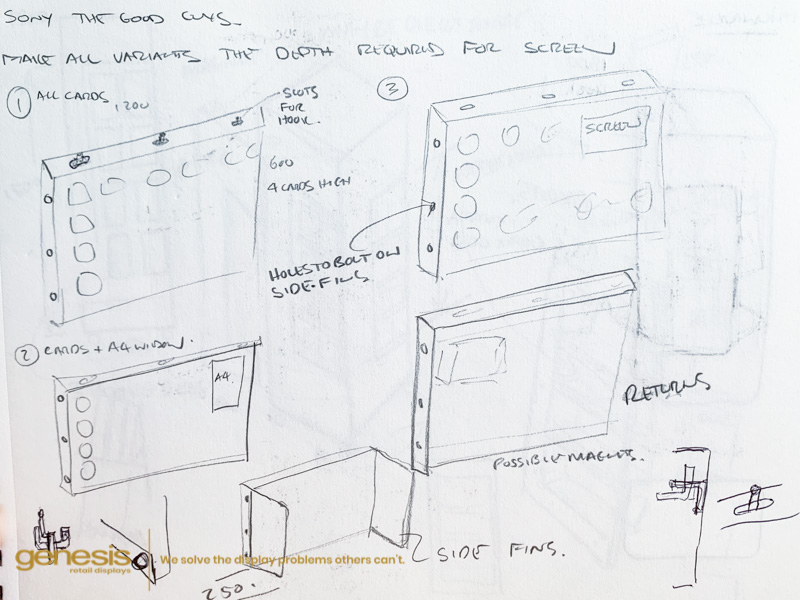 SONY THE GOOD GUYS.
MAKE ALL VARIANTS THE DEPTH REQUIRED FOR SCREEN
1 ALL CARDS
1200
SLOTS
FOR
HOOK.
600
4 CARDS HIGH
3
SCREEN
HOLES TO BOLT ON
SIDE-FINS
2 CARDS + A4 WINDOW.
A4
RETURNS
POSSIBLE MAGNETS.
SIDE FINS.
250.
genesis
retail displays
We solve the display problems others can't.